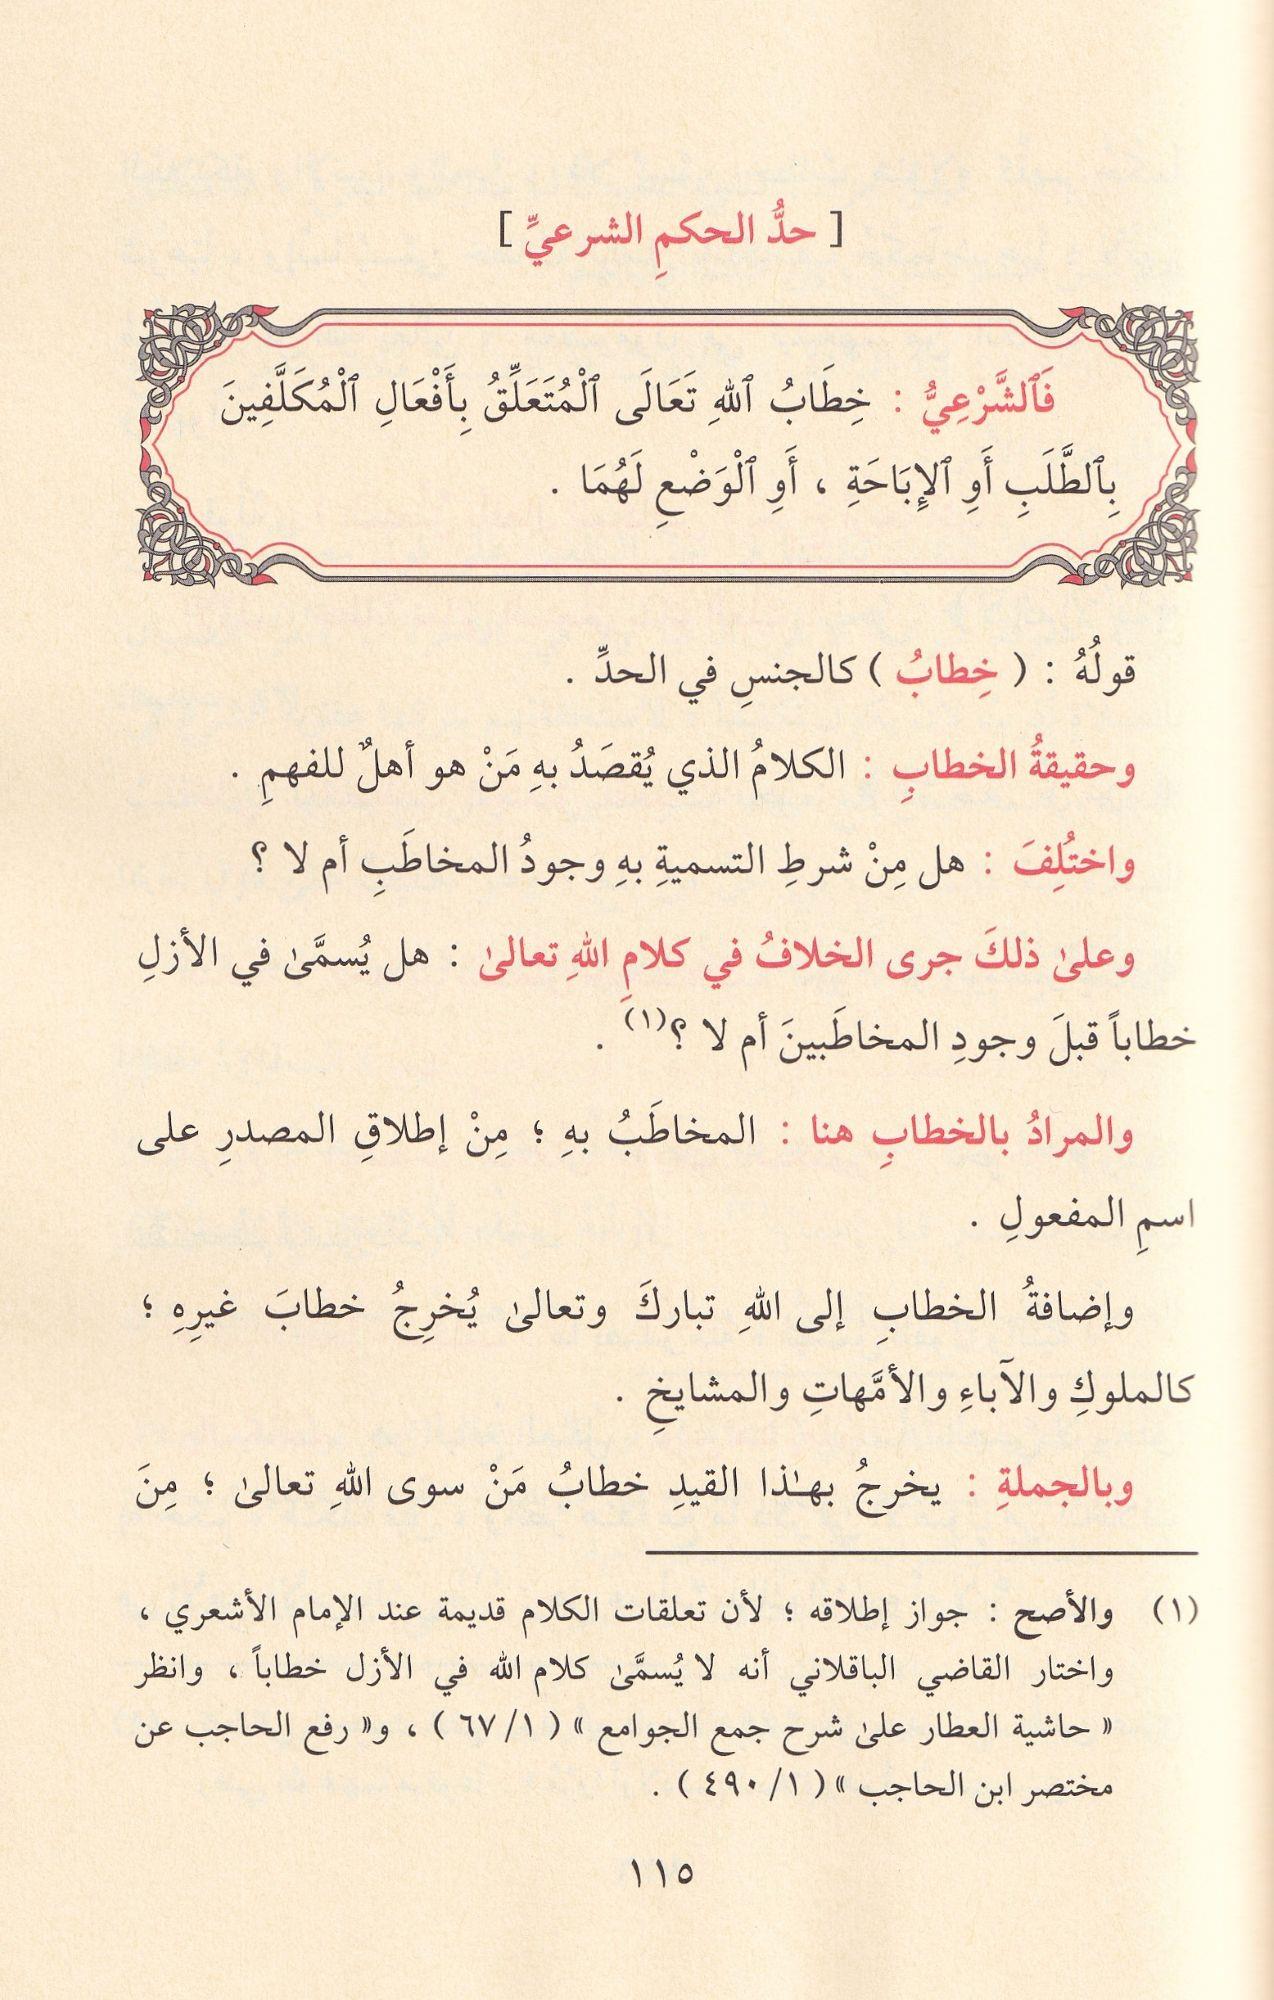 [ حدُّ الحكمِ الشرعيِّ ]
فَٱلشَّرْعِيُّ : خِطَابُ ٱللهِ تَعَالَى ٱلْمُتَعَلِّقُ بِأَفْعَالِ ٱلْمُكَلَّفِينَ
بِٱلطَّلَبِ أَوِ ٱلإِبَاحَةِ ، أَوِ ٱلْوَضْعِ لَهُمَا .
قولُهُ : ( خِطابُ ) كالجنسِ في الحدِّ .
وحقيقةُ الخطابِ : الكلامُ الذي يُقصَدُ بهِ مَنْ هو أهلٌ للفهمِ .
واختُلِفَ : هل مِنْ شرطِ التسميةِ بهِ وجودُ المخاطَبِ أم لا ؟
وعلىٰ ذلكَ جرى الخلافُ في كلامِ اللهِ تعالىٰ : هل يُسمَّىٰ في الأزلِ
خطاباً قبلَ وجودِ المخاطَبينَ أم لا ؟(١) .
والمرادُ بالخطابِ هنا : المخاطَبُ بهِ ؛ مِنْ إطلاقِ المصدرِ على
اسمِ المفعولِ .
وإضافةُ الخطابِ إلى اللهِ تباركَ وتعالىٰ يُخرِجُ خطابَ غيرِهِ ؛
كالملوكِ والآباءِ والأمَّهاتِ والمشايخِ .
وبالجملةِ : يخرجُ بهـٰذا القيدِ خطابُ مَنْ سوى اللهِ تعالىٰ ؛ مِنَ
(١) والأصح : جواز إطلاقه ؛ لأن تعلقات الكلام قديمة عند الإمام الأشعري ،
واختار القاضي الباقلاني أنه لا يُسمَّىٰ كلام الله في الأزل خطاباً ، وانظر
« حاشية العطار علىٰ شرح جمع الجوامع » ( ١/ ٦٧ ) ، و« رفع الحاجب عن
مختصر ابن الحاجب » ( ١/ ٤٩٠ ) .
١١٥